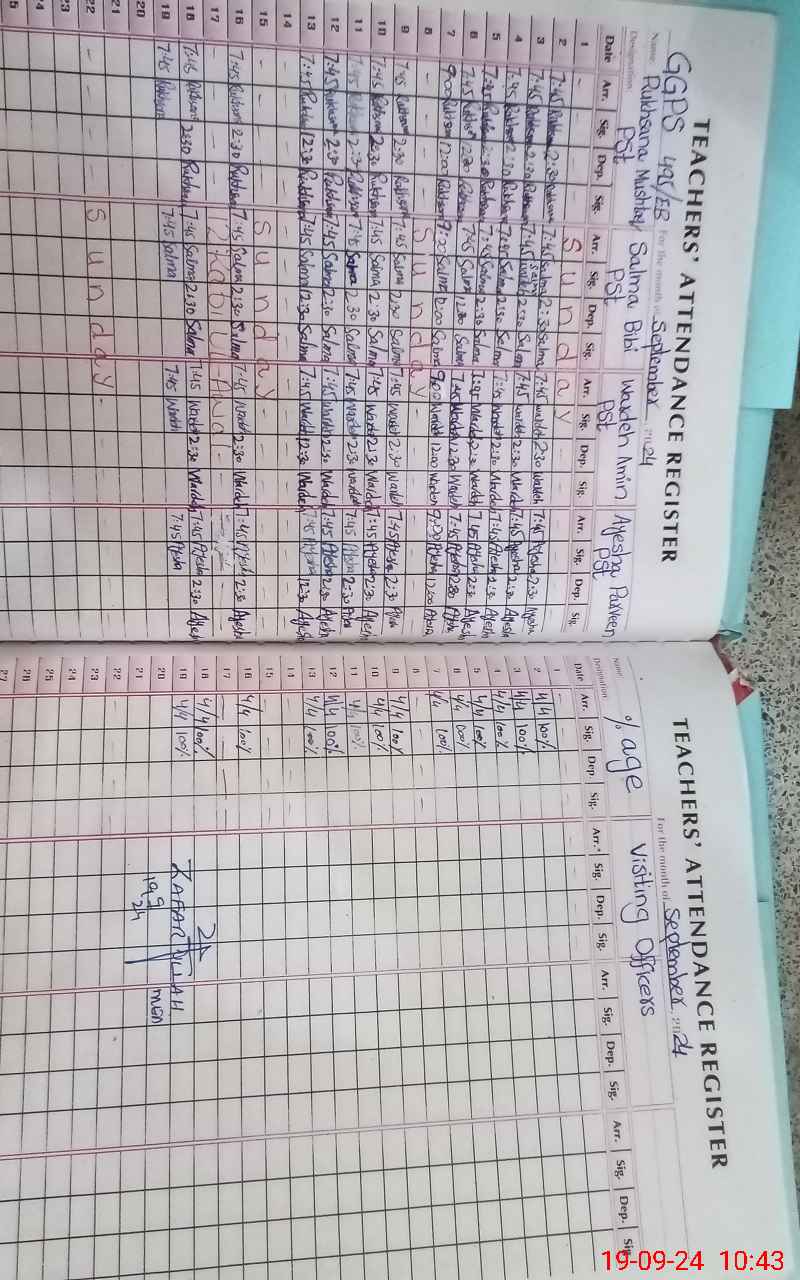 TEACHERS' ATTENDANCE REGISTER
GGPS 495/EB For the month of September 2024
Name: Rukhsana Mushtaq Salma Bibi Wardeh Amin Ayesha Parveen
Designation: PST PST PST PST
Date Arr. Sig. Dep. Sig. Arr. Sig. Dep. Sig. Arr. Sig. Dep. Sig. Arr. Sig. Dep. Sig.
1 - - - - Sunday
2 7:45 Rukhsana 2:30 Rukhsana 7:45 Salma 2:30 Salma 7:45 Wardeh 2:30 Wardeh 7:45 Ayesha 2:30 Ayesha
3 7:45 Rukhsana 2:30 Rukhsana 7:45 Salma 2:30 Salma 7:45 Wardeh 2:30 Wardeh 7:45 Ayesha 2:30 Ayesha
4 7:45 Rukhsana 2:30 Rukhsana 7:45 Salma 2:30 Salma 7:45 Wardeh 2:30 Wardeh 7:45 Ayesha 2:30 Ayesha
5 7:45 Rukhsana 2:30 Rukhsana 7:45 Salma 2:30 Salma 7:45 Wardeh 2:30 Wardeh 7:45 Ayesha 2:30 Ayesha
6 7:45 Rukhsana 12:30 Rukhsana 7:45 Salma 12:30 Salma 7:45 Wardeh 12:30 Wardeh 7:45 Ayesha 12:30 Ayesha
7 9:00 Rukhsana 12:00 Rukhsana 9:00 Salma 12:00 Salma 9:00 Wardeh 12:00 Wardeh 9:00 Ayesha 12:00 Ayesha
8 - - - - Sunday -
9 7:45 Rukhsana 2:30 Rukhsana 7:45 Salma 2:30 Salma 7:45 Wardeh 2:30 Wardeh 7:45 Ayesha 2:30 Ayesha
10 7:45 Rukhsana 2:30 Rukhsana 7:45 Salma 2:30 Salma 7:45 Wardeh 2:30 Wardeh 7:45 Ayesha 2:30 Ayesha
11 7:45 Rukhsana 2:30 Rukhsana 7:45 Salma 2:30 Salma 7:45 Wardeh 2:30 Wardeh 7:45 Ayesha 2:30 Ayesha
12 7:45 Rukhsana 2:30 Rukhsana 7:45 Salma 2:30 Salma 7:45 Wardeh 2:30 Wardeh 7:45 Ayesha 2:30 Ayesha
13 7:45 Rukhsana 12:30 Rukhsana 7:45 Salma 12:30 Salma 7:45 Wardeh 12:30 Wardeh 7:45 Ayesha 12:30 Ayesha
14
15 - - - - Sunday -
16 7:45 Rukhsana 2:30 Rukhsana 7:45 Salma 2:30 Salma 7:45 Wardeh 2:30 Wardeh 7:45 Ayesha 2:30 Ayesha
17 - - - - 12 Rabi Ul
18 7:45 Rukhsana 2:30 Rukhsana 7:45 Salma 2:30 Salma 7:45 Wardeh 2:30 Wardeh 7:45 Ayesha 2:30 Ayesha
19 7:45 Rukhsana 7:45 Salma 7:45 Wardeh 7:45 Ayesha
20
21
22 - - - - Sunday -
23
24
TEACHERS' ATTENDANCE REGISTER
For the month of September 2024
Name: %age Visiting Officers
Designation:
Date Arr. Sig. Dep. Sig. Arr. Sig. Dep. Sig. Arr. Sig. Dep. Sig. Arr. Sig. Dep. Sig.
1 - - - -
2 4/4 100%
3 4/4 100%
4 4/4 100%
5 4/4 100%
6 4/4 100%
7 4/4 100%
8 - - - -
9 4/4 100%
10 4/4 100%
11 4/4 100%
12 4/4 100%
13 4/4 100%
14
15 - - - -
16 4/4 100%
17 - - - -
18 4/4 100%
19 4/4 100% ZAFAR ULLAH
20 19 9 24
21
22 - - - -
23
24
25
26
27
19-09-24 10:43